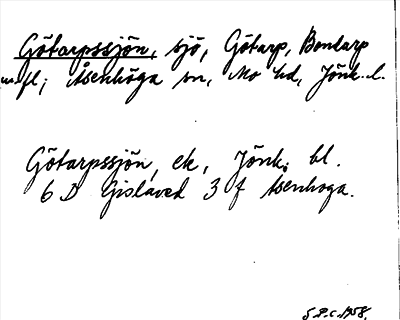 Götarpssjön, sjö, Götarp, Bondarp
m.fl; Åsenhöga sn, Mo hd, Jönk. l.
Götarpssjön, ek, Jönk. bl.
6 D Gislaved 3 f Åsenhöga.
S.P.C. 1958.